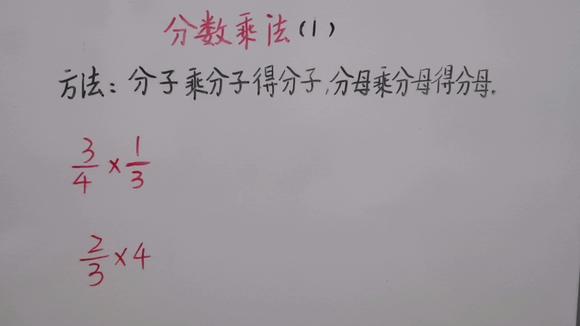 分数乘法(1)
方法:分子乘分子得分子,分母乘分母得分母.
3/4 × 1/3
2/3 × 4